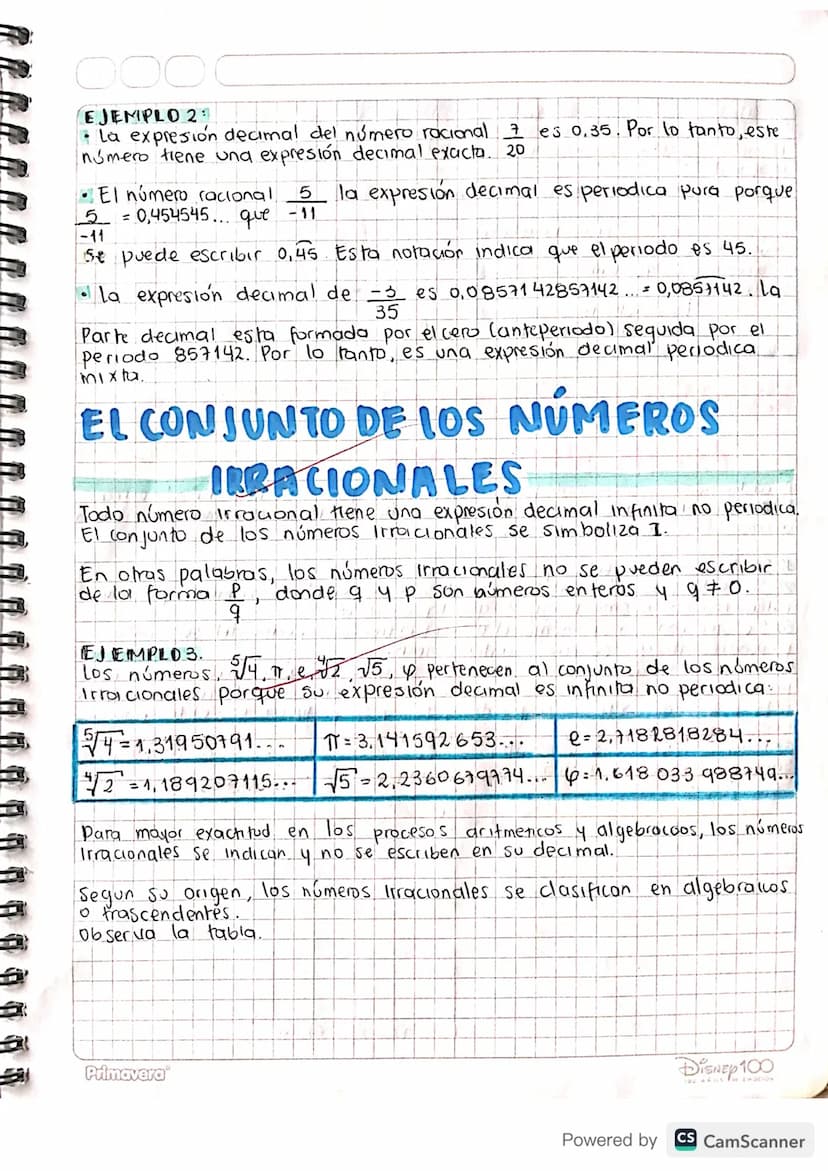 EJEMPLO 2:
• La expresión decimal del número racional 7/20 es 0,35. Por lo tanto, este
número tiene una expresión decimal exacta.
• El número racional 5/-11 la expresión decimal es periodica pura porque
5/-11 = 0,454545... que
se puede escribir 0,4͡5 Esta notación indica que el periodo es 45.
• la expresión decimal de -3/35 es 0,0857142857142... = 0,0857142. la
Parte decimal esta formada por el cero (anteperiodo) seguida por el
periodo 857142. Por lo tanto, es una expresión decimal periodica
mixta.
EL CONJUNTO DE LOS NÚMEROS
IRRACIONALES
Todo número irracional tiene una expresión decimal infinita no periodica.
El conjunto de los números Irracionales se simboliza I.
En otras palabras, los números Irracionales no se pueden escribir
de la forma P/q, donde q y p son números enteros y q ≠ 0.
EJEMPLO 3.
los números, ⁵√4, π, e, ⁴√2, √5, φ pertenecen al conjunto de los números
Irracionales porque su expresión decimal es infinita no periodica:
⁵√4 = 1,31950791... π = 3,141592653... e = 2,7182818284...
⁴√2 = 1,189207115... √5 = 2,2360679774... φ = 1.618 033 988749...
Para mayor exactitud en los procesos aritmeticos y algebracoos, los números
Irracionales se indican y no se escriben en su decimal.
Segun su origen, los números Irracionales se clasifican en algebraicos
o trascendentes.
Observa la tabla.
Primavera
Disney100
Powered by CS CamScanner